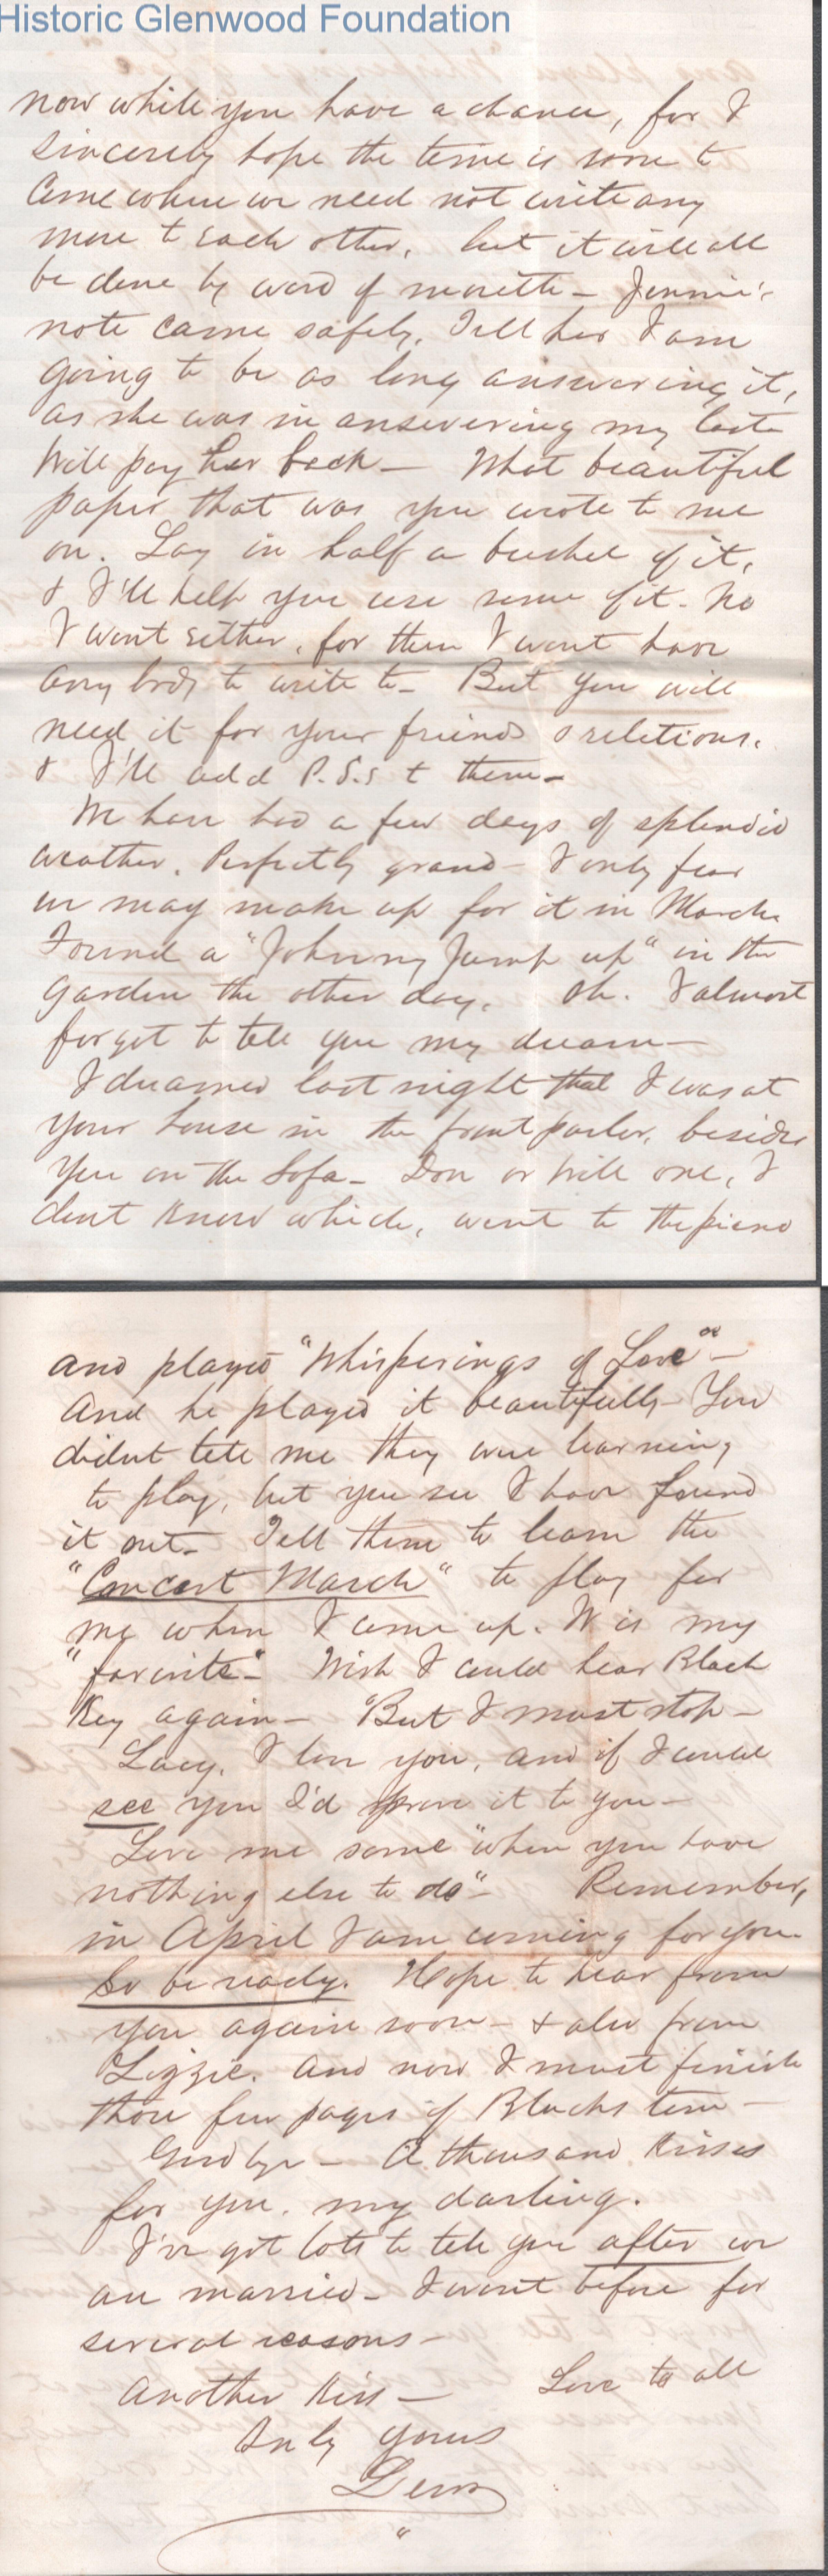 Historic Glenwood Foundation
now while you have a chance, for I
sincerely hope the time is soon to
come where we need not write any
more to each other, but it will all
be done by word of mouth – Jennie's
note came safely. Tell her I am
going to be as long answering it,
as she was in answering my last
Will pay her back – What beautiful
paper that was you wrote to me
on. Lay in half a bushel of it,
& I'll help you use some of it – No
I wont either, for then I wont have
any body to write to – But you will
need it for your friends & relations.
& I'll add P.S.s to them –
We have had a few days of splendid
weather. Perfectly grand – I only fear
we may make up for it in March.
Found a "Johnny Jump up" in the
garden the other day. Oh. I almost
forgot to tell you my dream –
I dreamed last night that I was at
your house in the front parlor, beside
you on the Sofa – Don or Will one, I
dont know which, went to the piano
and played "Whisperings of Love" –
And he played it beautifully – You
didnt tell me they were learning
to play, but you see I have found
it out – Tell them to learn the
"Concert March" to play for
me when I come up. It is my
"favorite" – Wish I could hear Black
Key again – But I must stop –
Lucy, I love you, and if I could
see you I'd prove it to you –
Love me some "when you have
nothing else to do" – Remember,
in April I am coming for you –
So be ready. Hope to hear from
you again soon – & also from
Lizzie. And now I must finish
those few pages of Blackstone –
Goodbye – A thousand Kisses
for you, my darling.
I've got lots to tell you after we
are married – I wont before for
several reasons –
Another Kiss – Love to all
Only yours